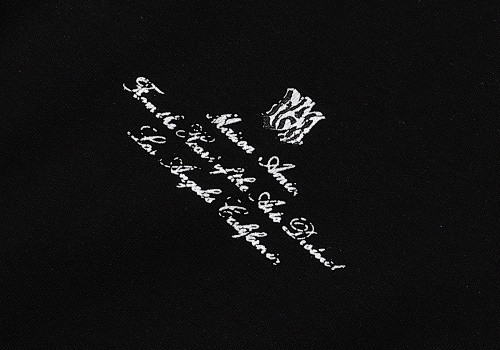 Maison Amir
From the Heart of the Arts District
Los Angeles California